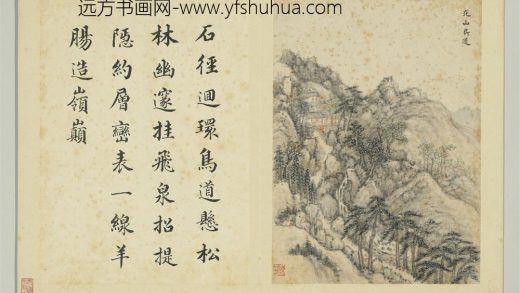 远方书画网-www.yfshuhua.com
花山鳥道
石徑迴環鳥道懸松
林幽邃挂飛泉招提
隱約層巒表一線羊
腸造嶺巔